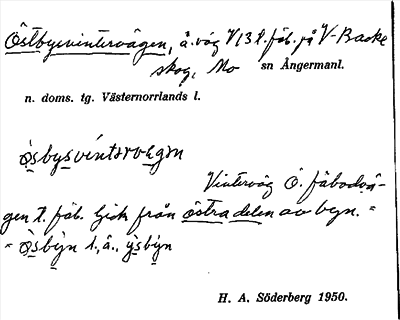 Östbysvintervägen, å. väg V/3 l. fäb. på V-Backe
skog, Mo sn Ångermanl.
n. doms. tg. Västernorrlands l.
ò̤sbysvíntərvɛgən
Vinterväg Ö. fäbodvä-
gen t. fäb. Gick från östra delen av byn. "
" Ò̤sbýn l., å., ỳsbýn
H. A. Söderberg 1950.